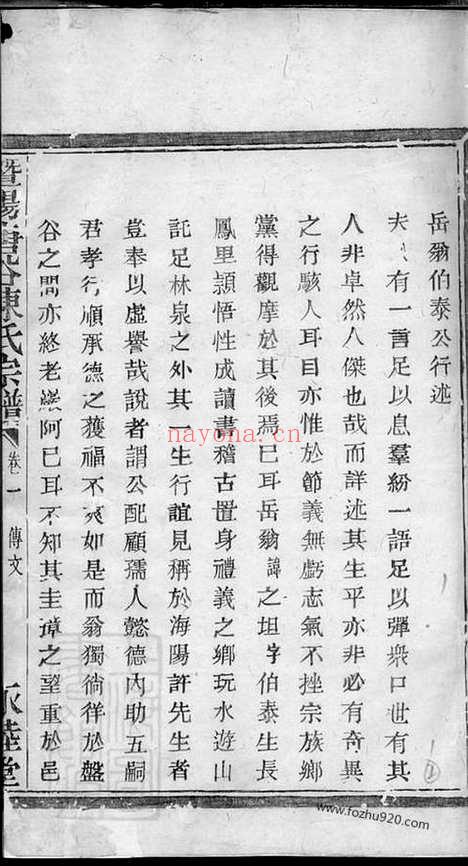 岳翁伯泰公行述
夫人有一言足以息羣紛一語足以彈衆口世有其
人非卓然人傑也哉而詳述其生平亦非必有奇異
之行駭人耳目亦惟於節義無虧志氣不挫宗族鄉
黨得觀摩於其後焉已耳岳翁諱之坦字伯泰生長
鳳里頴悟性成讀書稽古置身禮義之鄉玩水遊山
託足林泉之外其一生行誼見稱於海陽許先生者
豈奉以虛譽哉說者謂公配顧孺人懿德內助五嗣
君孝行順承德之獲福不爽如是而翁獨徜徉於盤
谷之間亦終老巖阿已耳不知其圭璋之望重於邑
暨陽 谷陳氏宗譜
卷一 傳文
永睦堂
nayona.cn
www.fozhu920.com